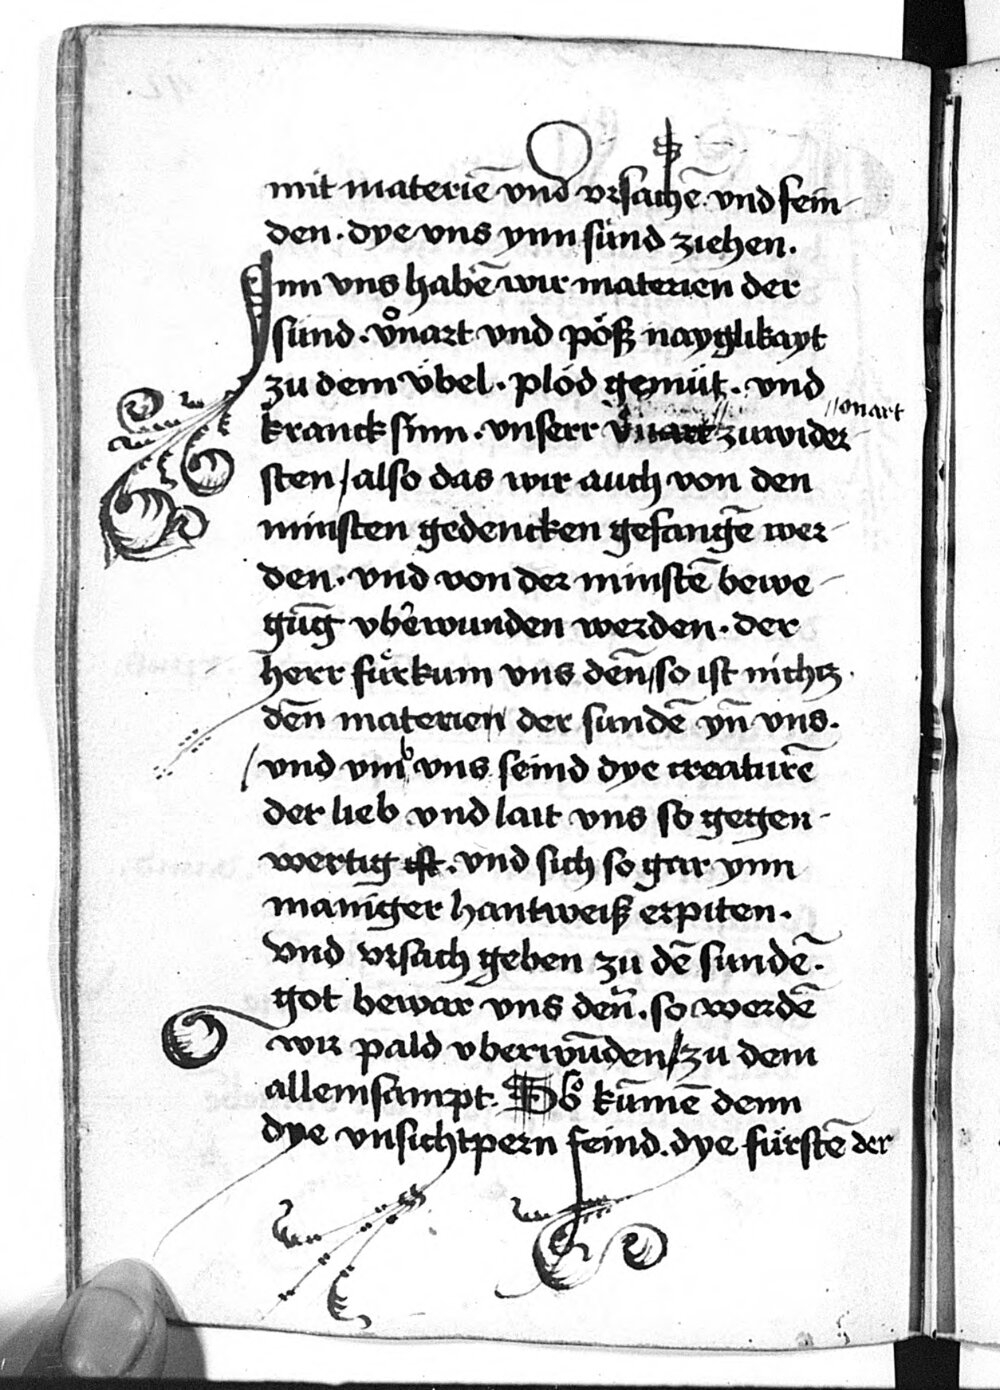 mit materiē vnd vrsachē. vnd fein-
den. dye vns ynn sünd ziehen.
Inn vns habē wir materien der
sünd. vnart vnd pöß nayglikayt
zu dem vbel. plöd gemüt. vnd
kranck sinn. vnserr vnart zuwider-
vnart
sten / also das wir auch von den
minsten gedencken gefangē wer-
den. vnd von der minstē bewe-
gūg vberwunden werden. der
herr fürkum vns deñ / so ist nichtz.
deñ materien der sundē yñ vns.
/ vnd vmb vns seind dye creaturē
der lieb vnd lait vns so gegen-
wertig ist. vnd sich so gar ynn
maniger hantweiß erpiten.
vnd vrsach geben zu dē sundē.
got bewar vns deñ. so werdē
wir pald vberwūden / zu dem
allemsampt. So kūmē denn
dye vnsichtpern feind. dye fürstē der